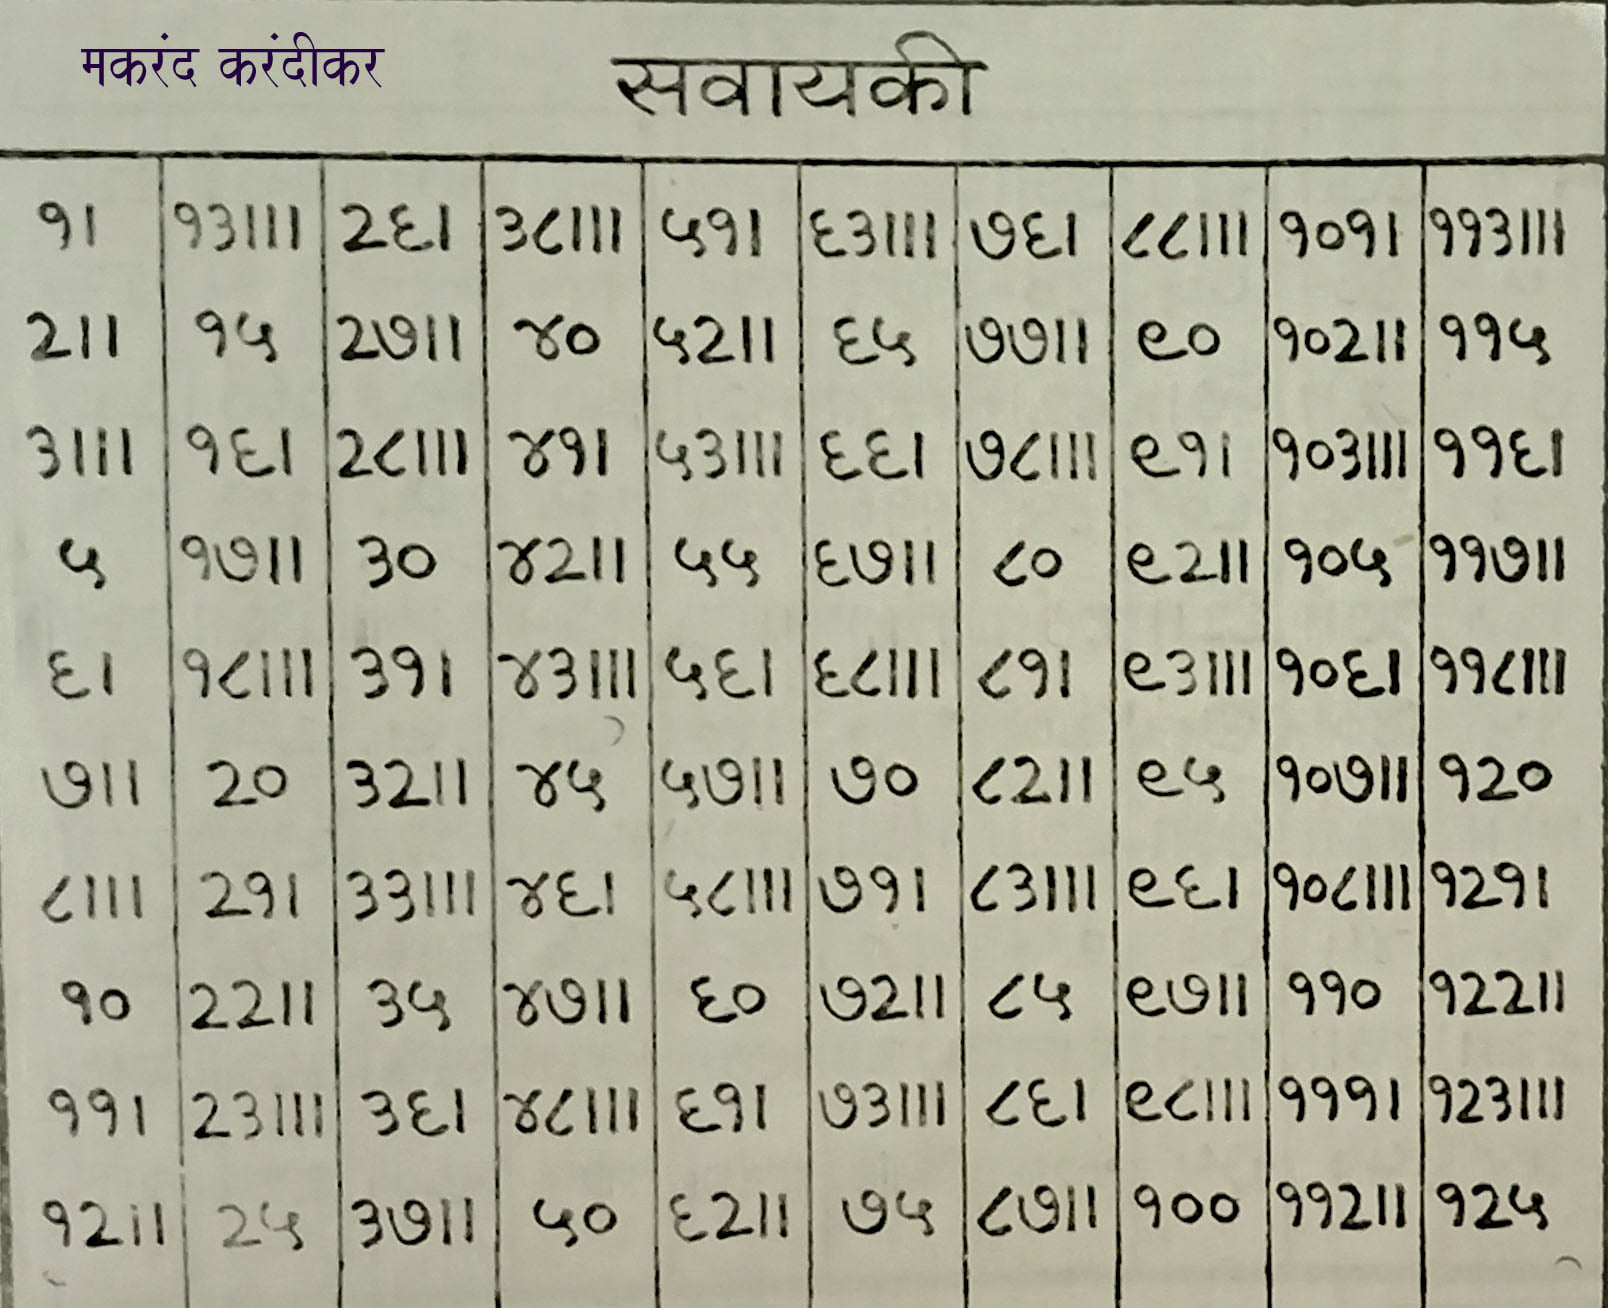 मकरंद करंदीकर
सवायकी
१। १३॥। २६। ३८॥। ५१। ६३॥। ७६। ८८॥। १०१। ११३॥।
२॥ १५ २७॥ ४० ५२॥ ६५ ७७॥ ९० १०२॥ ११५
३॥। १६। २८॥। ४१। ५३॥। ६६। ७८॥। ९१। १०३॥। ११६।
५ १७॥ ३० ४२॥ ५५ ६७॥ ८० ९२॥ १०५ ११७॥
६। १८॥। ३१। ४३॥। ५६। ६८॥। ८१। ९३॥। १०६। ११८॥।
७॥ २० ३२॥ ४५ ५७॥ ७० ८२॥ ९५ १०७॥ १२०
८॥। २१। ३३॥। ४६। ५८॥। ७१। ८३॥। ९६। १०८॥। १२१।
१० २२॥ ३५ ४७॥ ६० ७२॥ ८५ ९७॥ ११० १२२॥
११। २३॥। ३६। ४८॥। ६१। ७३॥। ८६। ९८॥। १११। १२३॥।
१२॥ २५ ३७॥ ५० ६२॥ ७५ ८७॥ १०० ११२॥ १२५